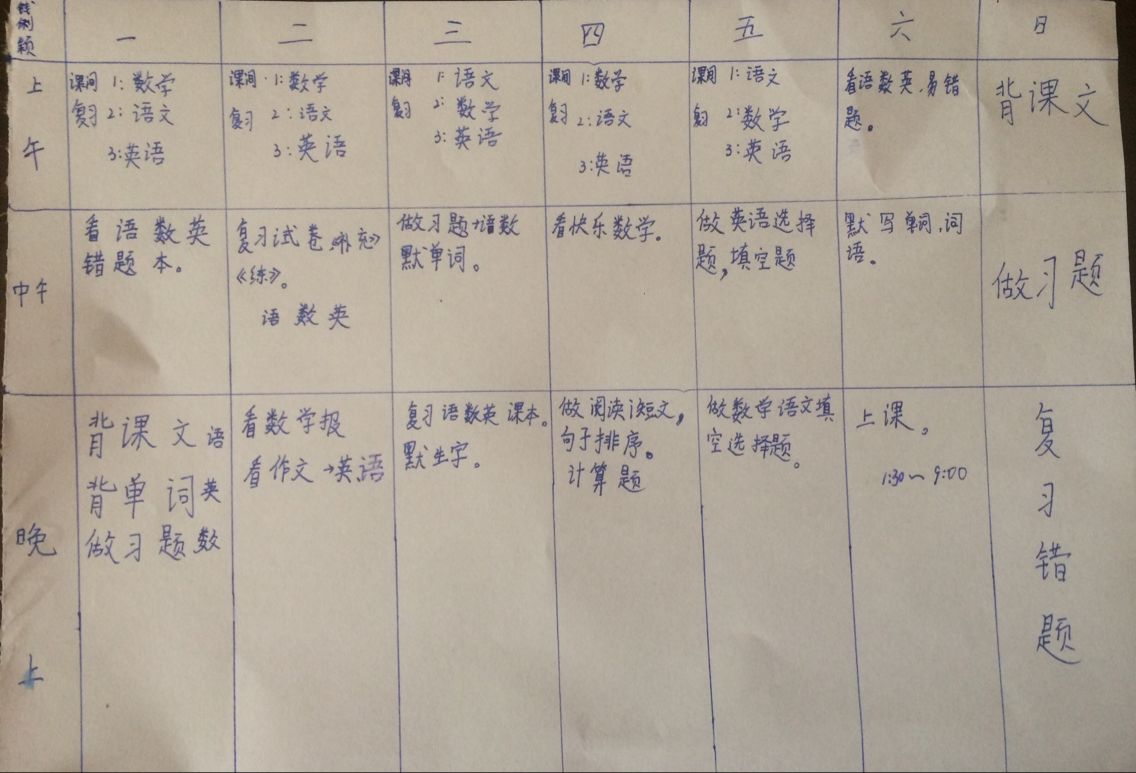 一 二 三 四 五 六 日
上午
课间 1: 数学
复习 2: 语文
3: 英语
课间 1: 数学
复习 2: 语文
3: 英语
课间 1: 语文
复习 2: 数学
3: 英语
课间 1: 数学
复习 2: 语文
3: 英语
课间 1: 语文
复习 2: 数学
3: 英语
看语数英、易错
题。
背课文
中午
看语数英
错题本。
复习试卷《补充》
《练》。
语数英
做习题→语数
默单词。
看快乐数学。
做英语选择
题,填空题
默写单词,词
语。
做习题
晚上
背课文语
背单词英
做习题数
看数学报
看作文→英语
复习语数英课本。
默生字。
做阅读短文,
句子排序。
计算题
做数学语文填
空选择题。
上课。
1:30~9:00
复
习
错
题